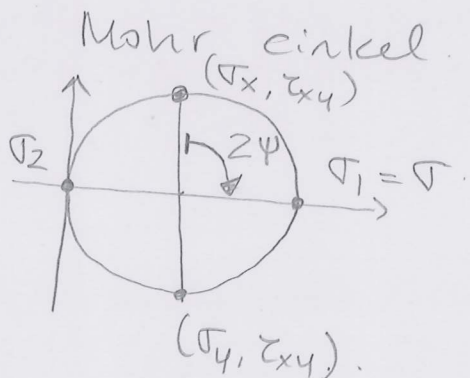 Mohr cirkel.
(σx, τxy)
σ2
2ψ
σ1 = σ.
(σy, τxy).